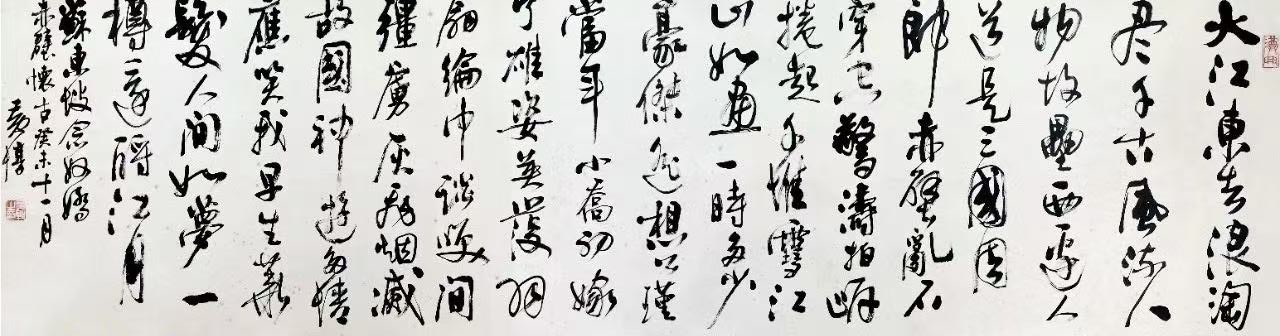 大江東去浪淘
尽千古風流人
物故壘西邊人
道是三國周
郎赤壁亂石
穿空驚濤拍岸
捲起千堆雪江
山如畫一時多少
豪傑遙想公瑾
當年小喬初嫁
了雄姿英發羽
扇綸巾談笑間
彊虜灰飛烟滅
故國神遊多情
應笑我早生華
髮人間如夢一
樽還酹江月
蘇東坡念奴嬌
赤壁懷古癸未十一月
黃惇